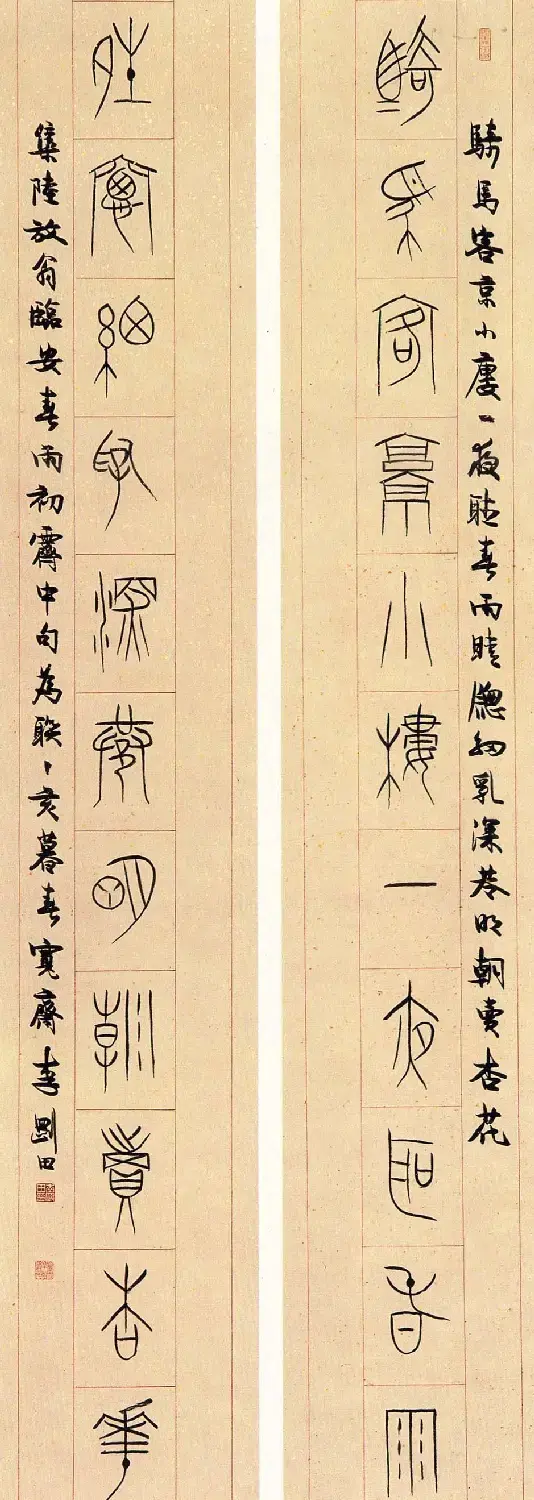 騎馬客京小廔一夜聽春雨晴窗細乳深巷明朝賣杏花
騎馬客京小樓一夜聽春雨
夝窗細乳深巷明朝賣杏華
集陸放翁臨安春雨初霽中句為聯丁亥暮春寬齋李剛田